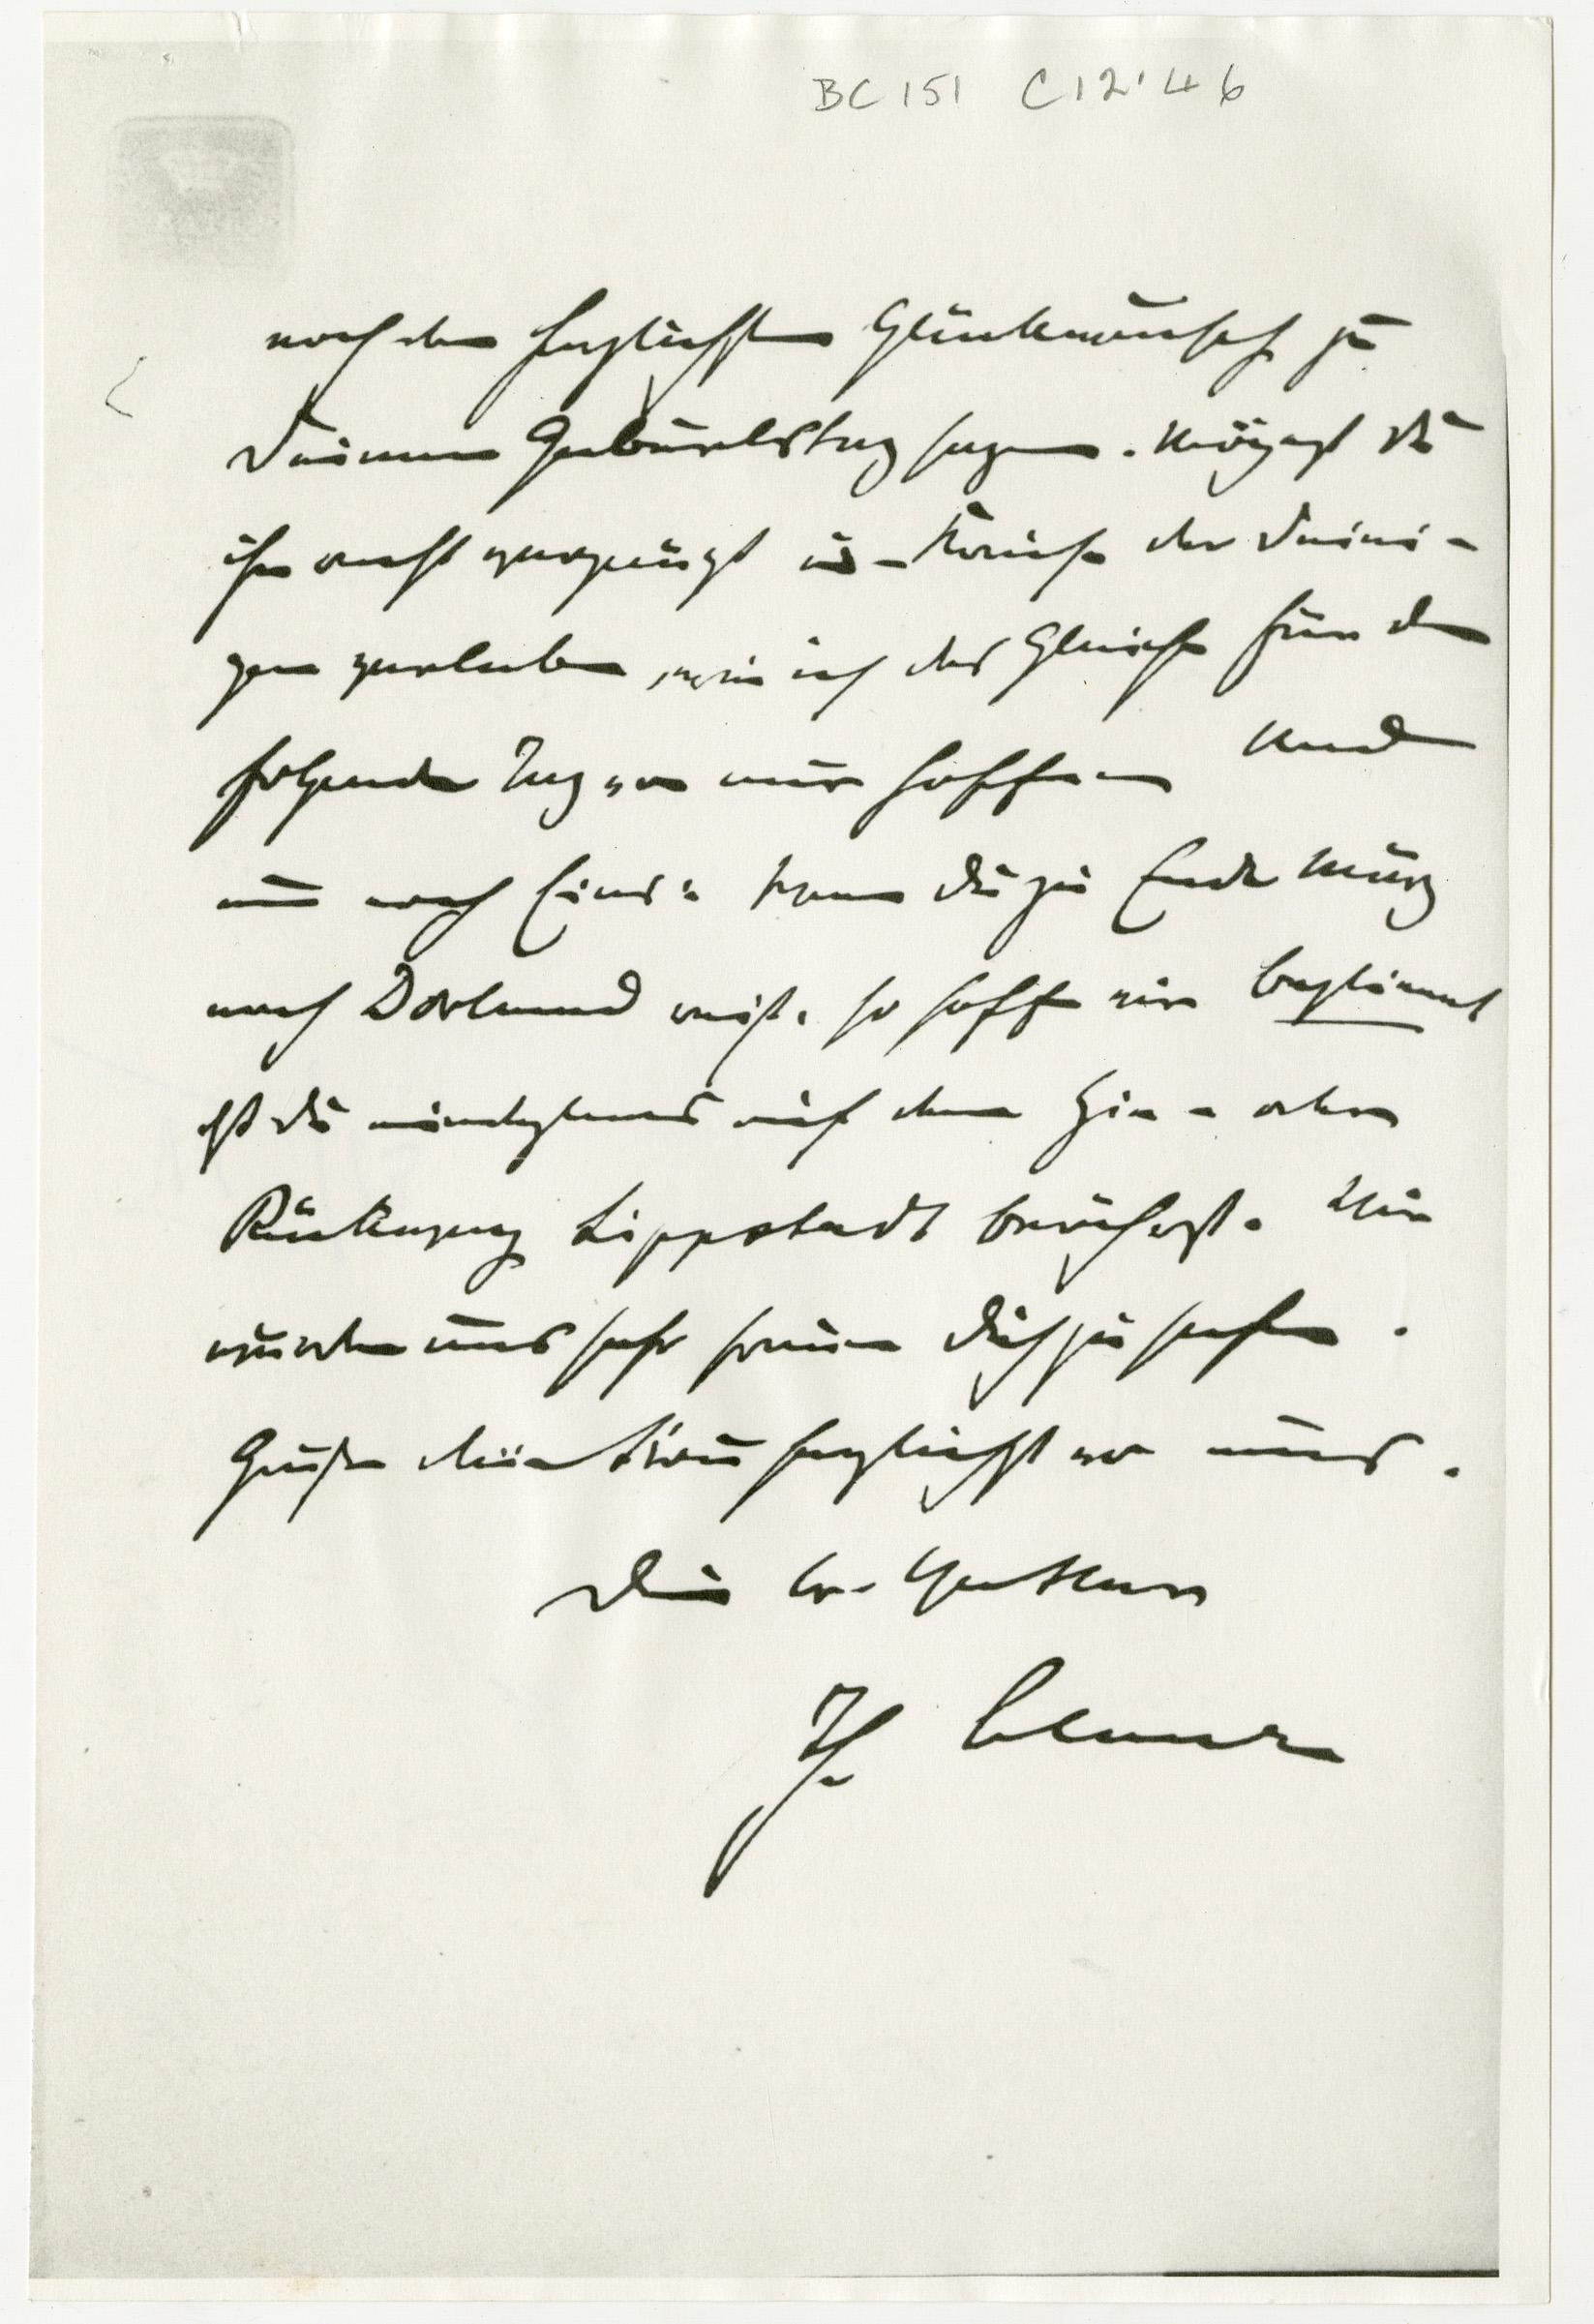 BC 151 C12'46
noch den herzlichsten Glückwunsch zu
Deinem Geburtstag sagen. Mögest Du
ihn recht vergnügt im Kreise der Deini-
gen verleben, wie ich das Gleiche für den
folgenden Tag von mir hoffe. Und
nun noch Eins: wenn Du zu Ende März
nach Dortmund reist, so hoffen wir bestimmt
daß Du mindestens auf dem Hin- oder
Rückweg Lippstadt berührst. Wir
würden uns sehr freuen Dich zu sehen.
Grüße Deine Frau herzlichst von uns.
Dein tr. Vetter
Th.